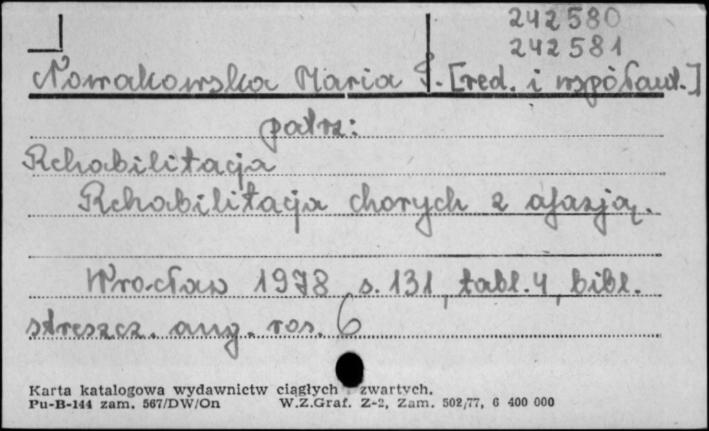 242580
242581
Nowakowska Maria P. [red. i współaut.]
patrz:
Rehabilitacja
Rehabilitacja chorych z afazją.
Wrocław 1978, s. 131, tabl. 4, bibl.
streszcz. ang. ros. 6
Karta katalogowa wydawnictw ciągłych zwartych.
Pu-B-144 zam. 567/DW/On W.Z.Graf. Z-2, Zam. 502/77, 6 400 000